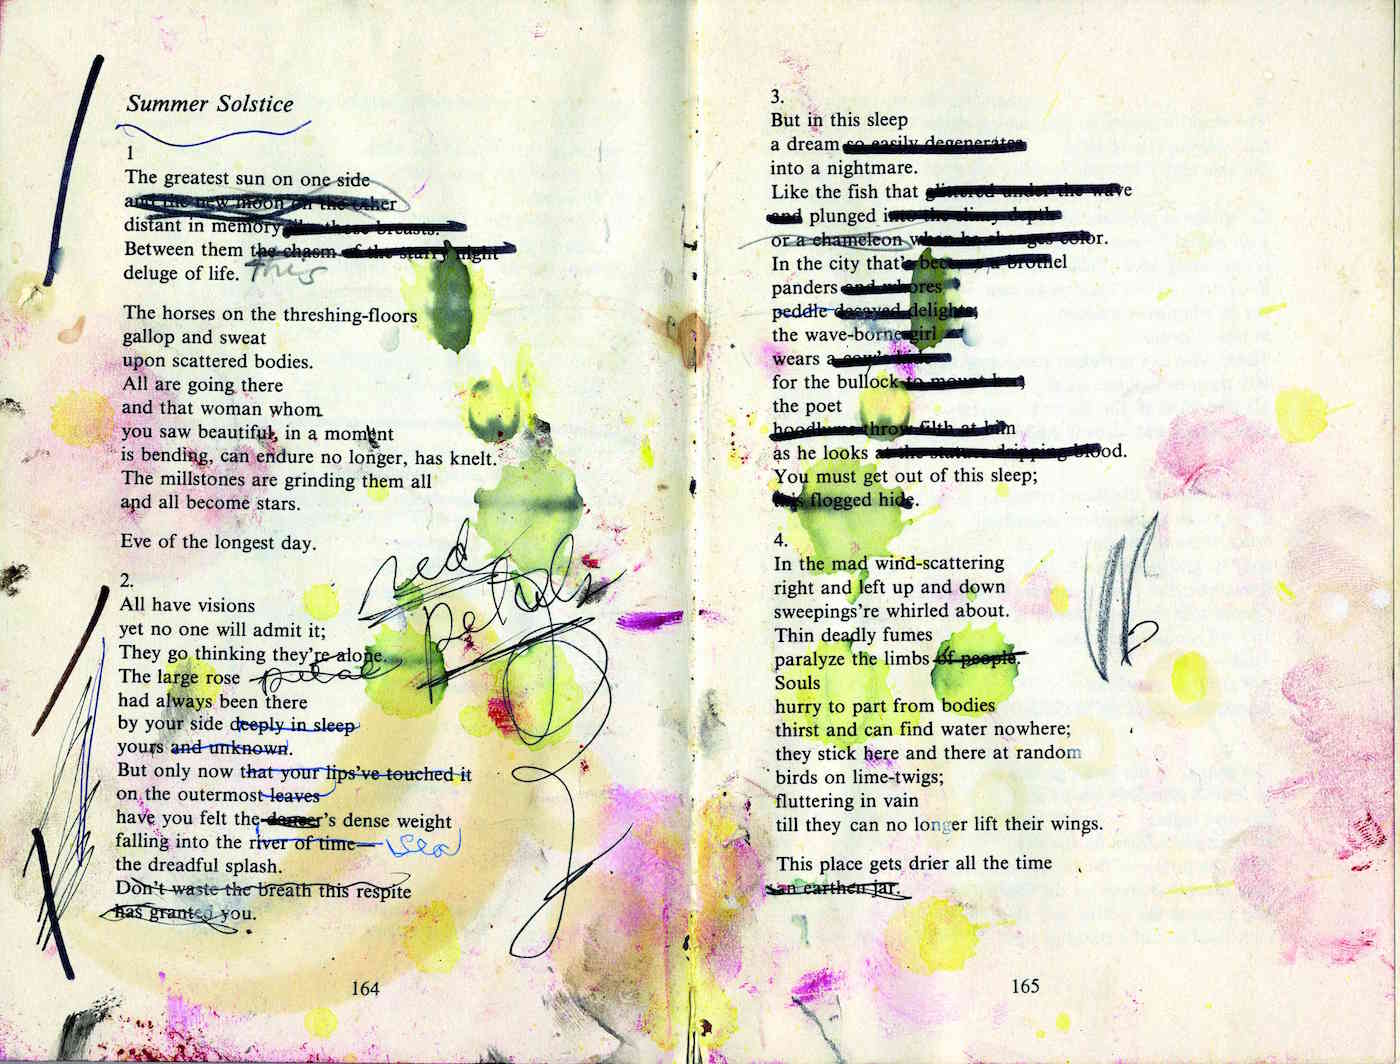 Summer Solstice
1
The greatest sun on one side
and the new moon on the other
distant in memory like those breasts.
Between them the chasm of the starry night
this
deluge of life.
The horses on the threshing-floors
gallop and sweat
upon scattered bodies.
All are going there
and that woman whom
you saw beautiful, in a moment
is bending, can endure no longer, has knelt.
The millstones are grinding them all
and all become stars.
Eve of the longest day.
red
petals
2.
All have visions
yet no one will admit it;
They go thinking they're alone.
The large rose petal
had always been there
by your side deeply in sleep
yours and unknown.
But only now that your lips've touched it
on the outermost leaves
have you felt the dancer's dense weight
falling into the river of time— sea
the dreadful splash.
Don't waste the breath this respite
has granted you.
164
3.
But in this sleep
a dream so easily degenerates
into a nightmare.
Like the fish that glittered under the wave
and plunged into the slimy depth
or a chameleon when he changes color.
In the city that's become a brothel
panders and whores
peddle decayed delights;
the wave-borne girl
wears a cow's hide
for the bullock to mount her;
the poet
hoodlums throw filth at him
as he looks at the statues dripping blood.
You must get out of this sleep;
this flogged hide.
4.
In the mad wind-scattering
right and left up and down
sweepings're whirled about.
Thin deadly fumes
paralyze the limbs of people.
Souls
hurry to part from bodies
thirst and can find water nowhere;
they stick here and there at random
birds on lime-twigs;
fluttering in vain
till they can no longer lift their wings.
This place gets drier all the time
an earthen jar.
165